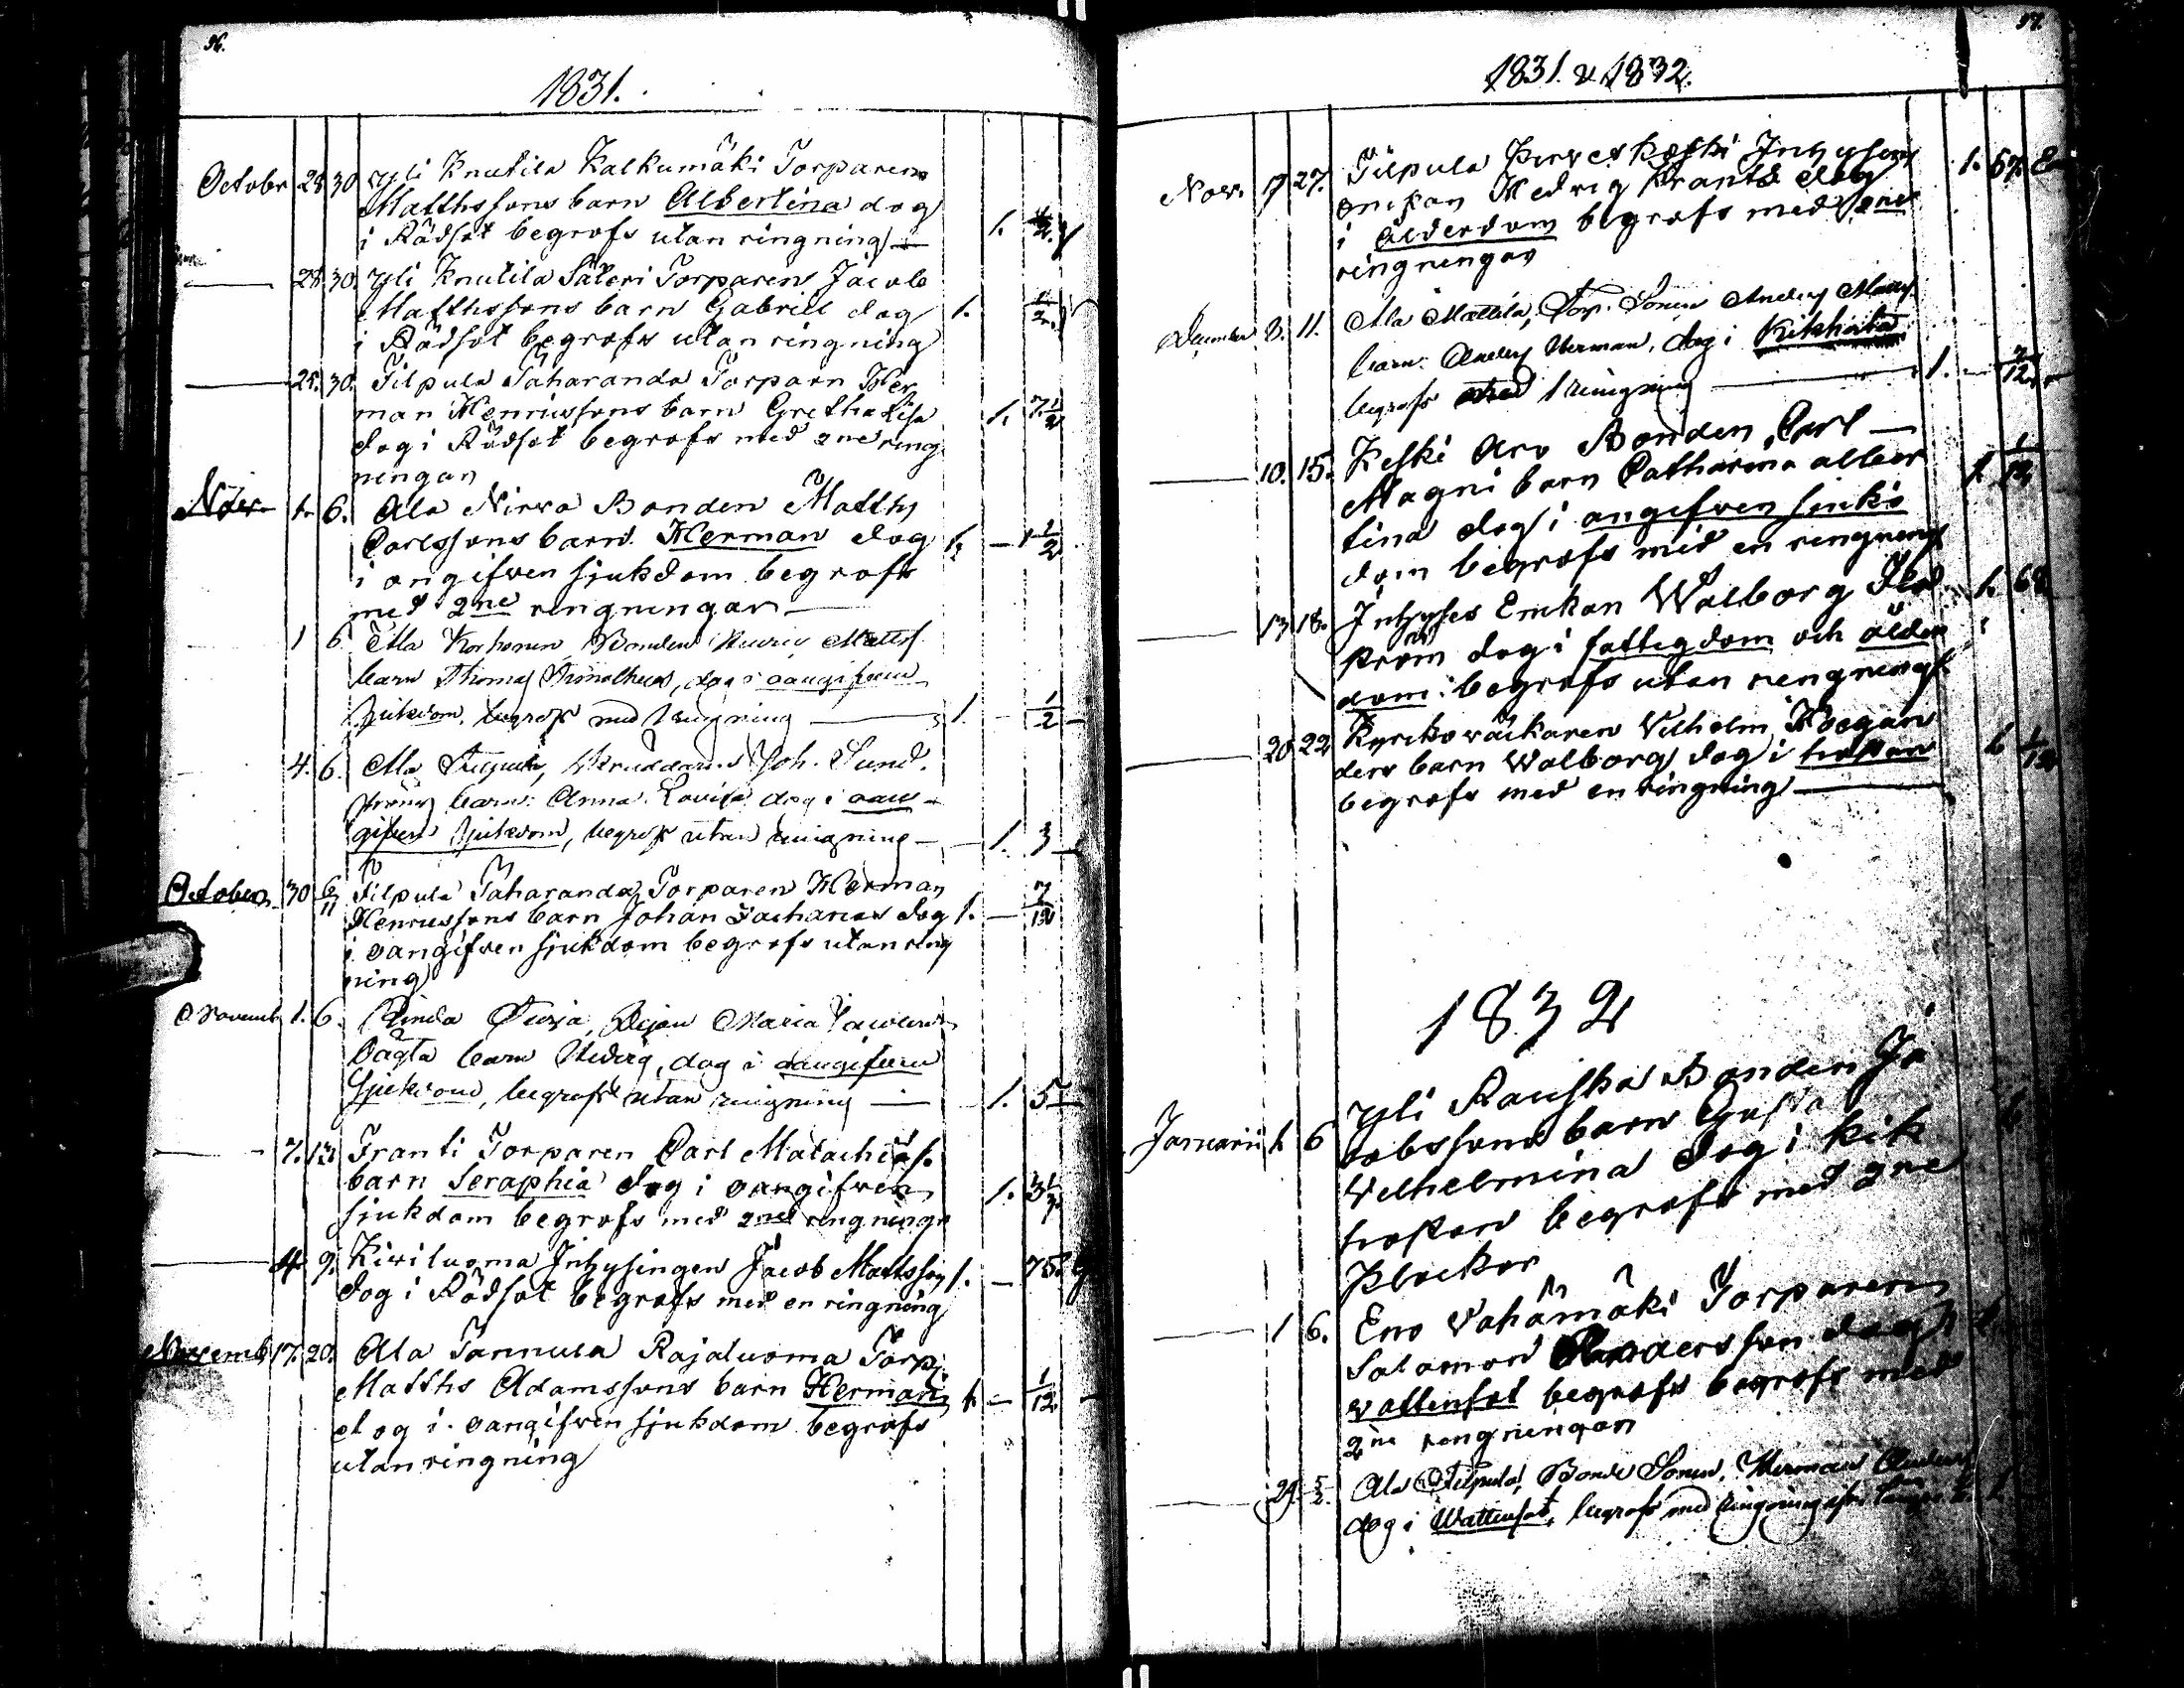 96.
1831.
October 28 30 Yli Knutila Kalkumäki Torparens
Matthssons barn Albertina dog
i Rödsot begrofs utan ringning 1. 1/2
28 30. Yli Knutila Säteri Torparens Jacob
Matthssons barn Gabriel dog 1. 1/2
i Rödsot begrofs utan ringning
25. 30. Filpula Saharanda Torparn Her
man Henricssons barn Gretha Lisa 1. 7 1/2
dog i Rödsot begrofs med 2ne ring
ningar
Nov. 1. 6. Ala Nirva Bonden Matths
Carlssons barn Herman dog 1. 1/2
i ongifven sjukdom begrofs
med 2ne ringningar
1 6 Ala Korhonen Bonden Henric Matts
barn Thomas Timotheus, dog i oangifven
sjukdom begrofs med 1 ringning 1. 1/2
4. 6. Ala Joh. Sund
ströms barn: Anna Lovisa dog i oan
gifven sjukdom, begrofs utan ringning 1. 3
October 30 6/11 Filpula Saharanda Torparen Herman
Henricssons barn Johan Zacharias dog 1. 7/12
i oangifven sjukdom begrofs utan ring
ning
Novemb 1. 6. Pigan Maria
barn Hedvig, dog i oangifven
sjukdom, begrofs utan ringning 1. 5
7. 13 Franti Torparen Carl Malachias
barn Seraphia dog i oangifven 1. 3 1/2
sjukdom begrofs med 2ne ringningr
4 9. Kiviluoma Inhysingen Jacob Mattsson 1. 75.
dog i Rödsot begrofs med en ringning
Novemb 17. 20. Ala Tannula Rajaluoma Torp.
Matths Adamssons barn Herman 1. 1/12
dog i oangifven sjukdom begrofs
utan ringning
97.
1831. & 1832.
Nov. 17 27. Filpula Inhyses
enkan Hedvig Frants dog 1. 67.
i ålderdom begrofs med 2ne
ringningar
December 3. 11. Ala Mattila, Torp. Sonen Anders Matts
barn: Anders Herman, dog i Kikhosta
begrofs med 1 ringning 1. 7/12
10. 15. Keski Aro Bonden Carl
Magni barn Catharina alber
tina dog i angifven sjuk 1. 1/12
dom begrofs med en ringning
13 18. Inhyses Enkan Walborg
ström dog i fattigdom och ålder 1. 68
dom begrofs utan ringning
20 22 Kyrkoväktaren Vilhelm
ders barn Walborg dog i hostan 1. 1/12
begrofs med en ringning
1832
Januarii 1. 6 Yli Rauska Bonden Ja
cobssons barn Gusta
Vilhelmina dog i kik
hostan begrofs med 2ne
Klockor
1 6. Eno Vahämäki Torparen
Salamon Andersson dog i
vattensot begrofs begrofs med
2ne ringningar
29. 5/2. Ala Filpula, Bonde Sonen, Herman Anders
dog i Wattensot, begrofs med ringning